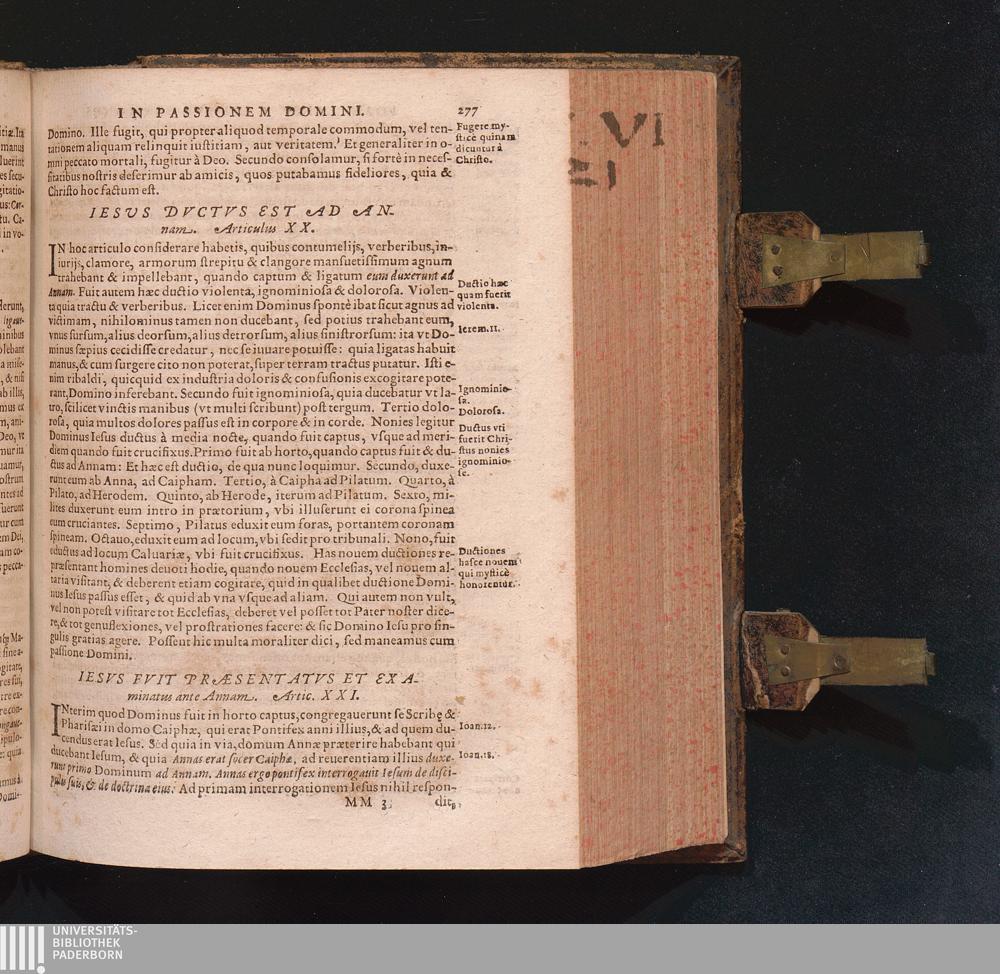 IN PASSIONEM DOMINI. 277
Domino. Ille fugit, qui propter aliquod temporale commodum, vel ten-
tationem aliquam relinquit iustitiam, aut veritatem. Et generaliter in o-
mni peccato mortali, fugitur à Deo. Secundo consolamur, si fortè in neces-
sitatibus nostris deserimur ab amicis, quos putabamus fideliores, quia &
Christo hoc factum est.
Fugere my-
sticè quinam
dicuntur à
Christo.
IESVS DVCTVS EST AD AN-
nam. Articulus XX.
IN hoc articulo considerare habetis, quibus contumelijs, verberibus, in-
iurijs, clamore, armorum strepitu & clangore mansuetissimum agnum
trahebant & impellebant, quando captum & ligatum eum duxerunt ad
Annam. Fuit autem hæc ductio violenta, ignominiosa & dolorosa. Violen-
ta quia tractu & verberibus. Licet enim Dominus spontè ibat sicut agnus ad
victimam, nihilominus tamen non ducebant, sed potius trahebant eum,
vnus sursum, alius deorsum, alius detrorsum, alius sinistrorsum: ita vt Do-
minus sæpius cecidisse credatur, nec se iuuare potuisse: quia ligatas habuit
manus, & cum surgere cito non poterat, super terram tractus putatur. Isti e-
nim ribaldi, quicquid ex industria doloris & confusionis excogitare pote-
rant, Domino inferebant. Secundo fuit ignominiosa, quia ducebatur vt la-
tro, scilicet vinctis manibus (vt multi scribunt) post tergum. Tertio dolo-
rosa, quia multos dolores passus est in corpore & in corde. Nonies legitur
Dominus Iesus ductus à media nocte, quando fuit captus, vsque ad meri-
diem quando fuit crucifixus. Primo fuit ab horto, quando captus fuit & du-
ctus ad Annam: Et hæc est ductio, de qua nunc loquimur. Secundo, duxe-
runt eum ab Anna, ad Caipham. Tertio, à Caipha ad Pilatum. Quarto, à
Pilato, ad Herodem. Quinto, ab Herode, iterum ad Pilatum. Sexto, mi-
lites duxerunt eum intro in prætorium, vbi illuserunt ei corona spinea
eum cruciantes. Septimo, Pilatus eduxit eum foras, portantem coronam
spineam. Octauo, eduxit eum ad locum, vbi sedit pro tribunali. Nono, fuit
eductus ad locum Caluariæ, vbi fuit crucifixus. Has nouem ductiones re-
præsentant homines deuoti hodie, quando nouem Ecclesias, vel nouem al-
taria visitant, & deberent etiam cogitare, quid in qualibet ductione Domi-
nus Iesus passus esset, & quid ab vna vsque ad aliam. Qui autem non vult,
vel non potest visitare tot Ecclesias, deberet vel posset tot Pater noster dice-
re, & tot genuflexiones, vel prostrationes facere: & sic Domino Iesu pro sin-
gulis gratias agere. Possent hic multa moraliter dici, sed maneamus cum
passione Domini.
Ductio hæc
quam fuerit
violenta.
Ierem. 11.
Ignominio-
sa.
Dolorosa.
Ductus vti
fuerit Chri-
stus nonies
ignominio-
se.
Ductiones
hasce nouem
qui mysticè
honorentur.
IESVS FVIT PRÆSENTATVS ET EXA-
minatus ante Annam. Artic. XXI.
INterim quod Dominus fuit in horto captus, congregauerunt se Scribę &
Pharisæi in domo Caiphæ, qui erat Pontifex anni illius, & ad quem du-
cendus erat Iesus. Sed quia in via, domum Annæ præterire habebant qui
ducebant Iesum, & quia Annas erat socer Caiphæ, ad reuerentiam illius duxe-
runt primo Dominum ad Annam. Annas ergo pontifex interrogauit Iesum de disci-
pulis suis, & de doctrina eius. Ad primam interrogationem Iesus nihil respon-
Ioan. 12.
Ioan. 18.
MM 3 dit,
VI
UNIVERSITÄTS-
BIBLIOTHEK
PADERBORN